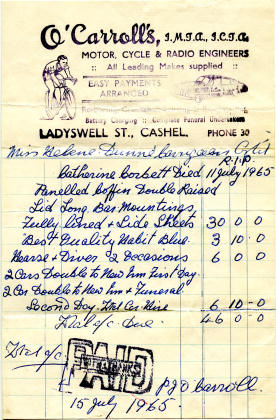 O'Carroll's, I.M.T.A., I.C.T.A.
MOTOR, CYCLE & RADIO ENGINEERS
:: All Leading Makes supplied ::
EASY PAYMENTS
ARRANGED
Battery Charging :: Complete Funeral Undertakers
LADYSWELL ST., CASHEL. PHONE 30
Miss Helene Dunne
R.I.P.
Catherine Corbett Died 11 July 1965
Panelled Coffin Double Raised
Lid Long Bar Mountings
Fully lined & Side Sheets 30 0 0
Best Quality Habit Blue 3 10 0
Hearse & Driver 2 Occasions 6 0 0
2 Cars Double to New Inn First Day.
2 Car Double to New Inn & Funeral
Second Day. Ttl Car Hire 6 10 0
Ttal a/c Due 46 0 0
Ttl a/c
PAID
WITH THANKS
P J O Carroll.
15 July 1965